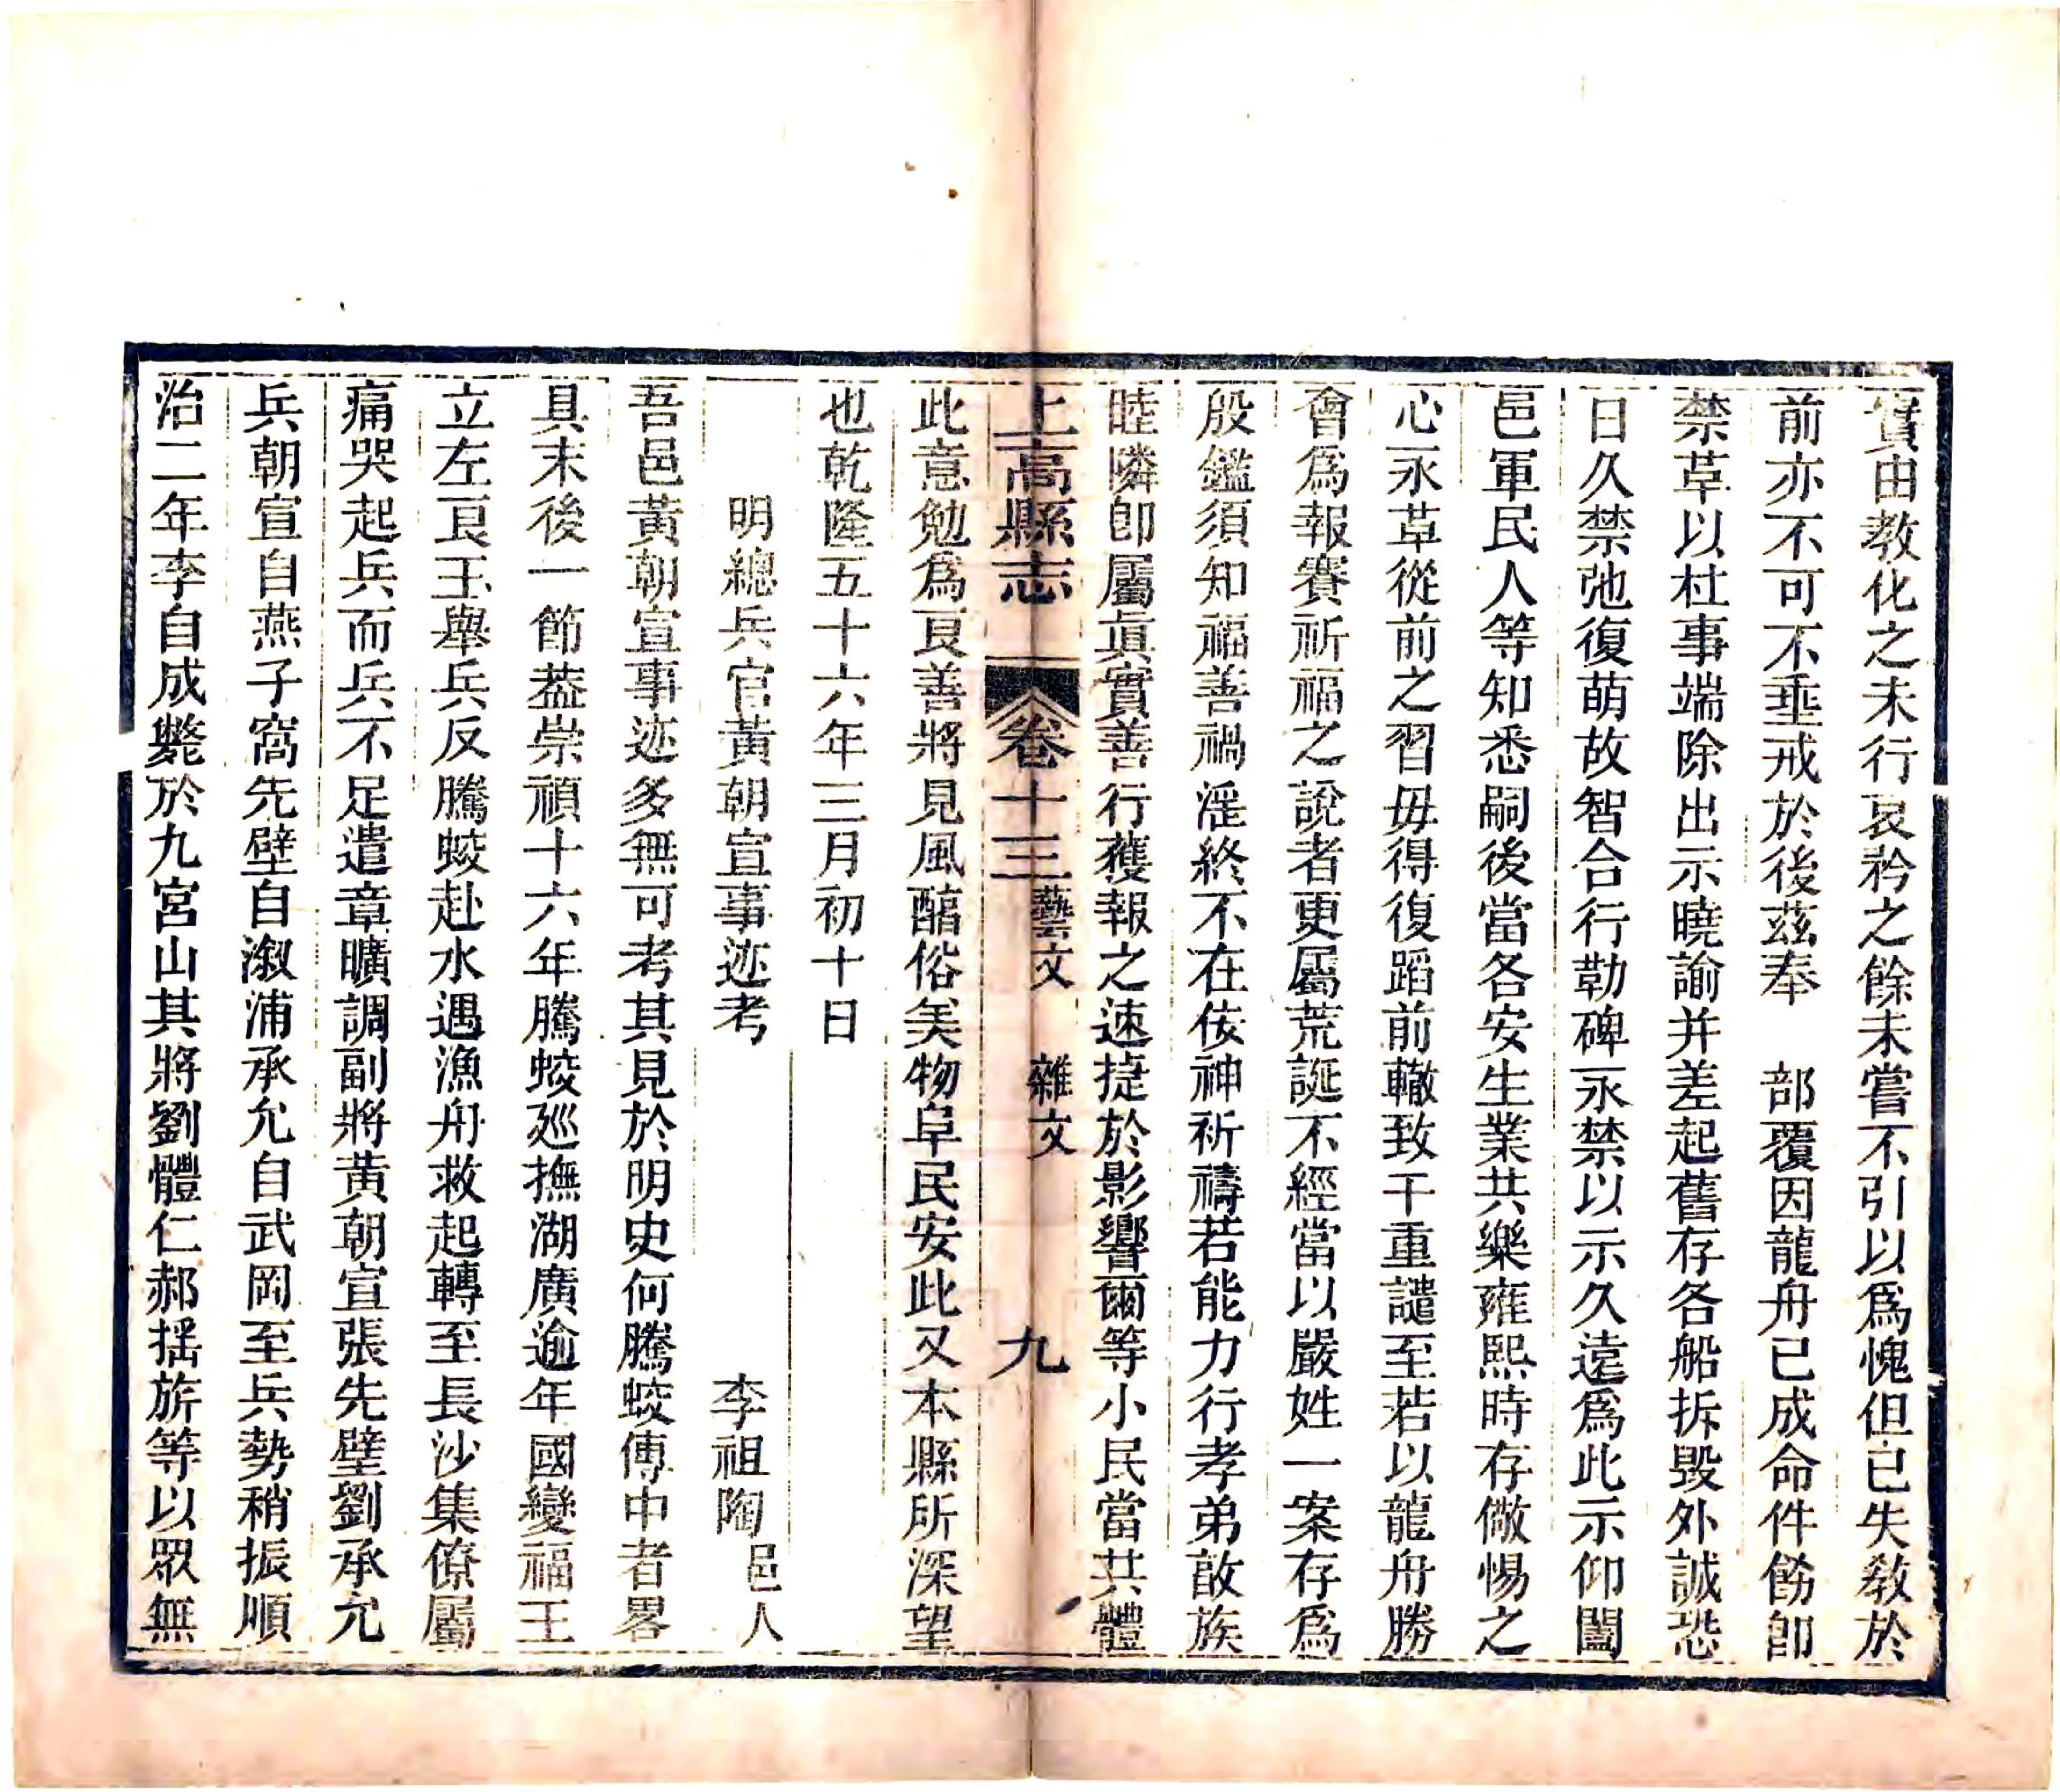 實由教化之未行哀矜之餘未嘗不引以爲愧但已失敎於
前亦不可不垂戒於後茲奉　部覆因龍舟已成命件飭卽
禁草以杜事端除出示曉諭并差起舊存各船拆毀外誠恐
日久禁弛復萌故智合行勒碑永禁以示久遠爲此示仰闔
邑軍民人等知悉嗣後當各安生業共樂雍熙時存儆惕之
心永草從前之習毋得復蹈前轍致干重譴至若以龍舟勝
會爲報賽祈福之說者更屬荒誕不經當以嚴姓一案存爲
殷鑑須知福善禍淫終不在侫神祈禱若能力行孝弟敵族
睦隣卽屬眞實善行獲報之速捷於影響爾等小民當共體
上高縣志　卷十三　藝文　雜文　九
此意勉爲良善將見風醕俗美物阜民安此又本縣所深望
也乾隆五十六年三月初十日
明總兵官黃朝宣事迹考　李祖陶邑人
吾邑黃朝宣事迹多無可考其見於明史何騰蛟傳中者畧
具末後一節葢崇禎十六年騰蛟廵撫湖廣逾年國變福王
立左良玉舉兵反騰蛟赴水遇漁舟救起轉至長沙集僚屬
痛哭起兵而兵不足遣章曠調副將黃朝宣張先壁劉承允
兵朝宣自燕子窩先壁自溆浦承允自武岡至兵勢稍振順
治二年李自成斃於九宮山其將劉體仁郝搖旂等以眾無